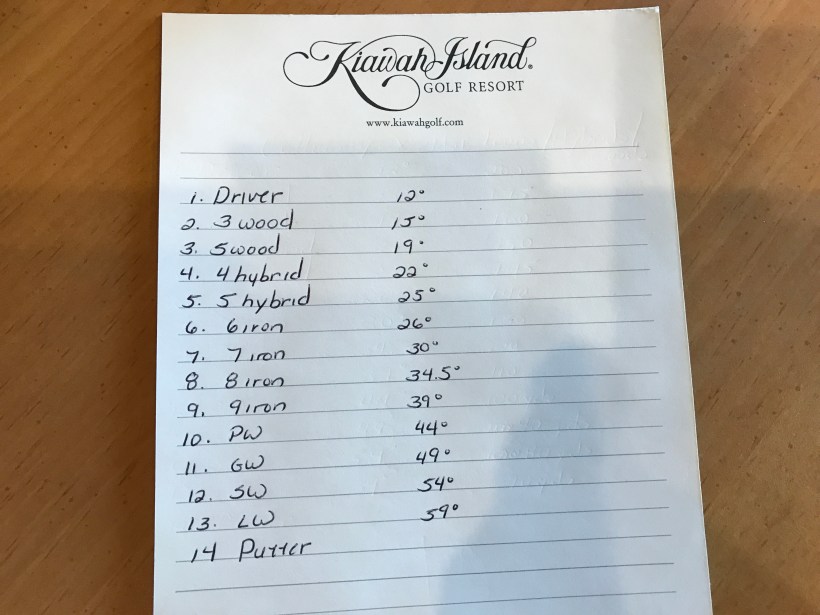 Kiawah Island®
GOLF RESORT
www.kiawahgolf.com
1. Driver 12°
2. 3 wood 15°
3. 5 wood 19°
4. 4 hybrid 22°
5. 5 hybrid 25°
6. 6 iron 26°
7. 7 iron 30°
8. 8 iron 34.5°
9. 9 iron 39°
10. PW 44°
11. GW 49°
12. SW 54°
13. LW 59°
14 Putter